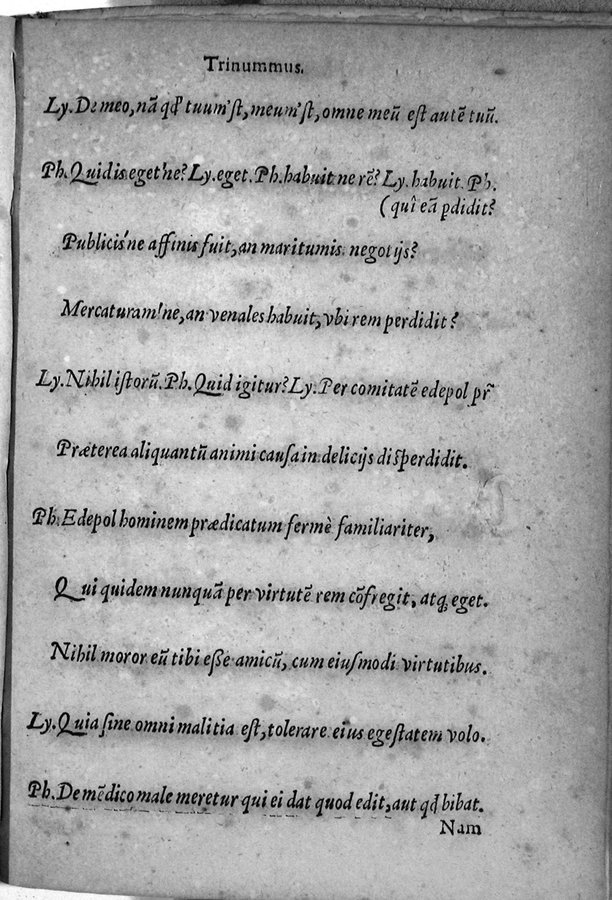 Trinummus.
Ly. De meo, nã qđ tuum'st, meum'st, omne meũ est autẽ tuũ.
Ph. Quid is eget'ne? Ly. eget. Ph. habuit ne rẽ? Ly. habuit. Ph.
(quî eã pdidit?
Publicis'ne affinis fuit, an maritumis negotijs?
Mercaturam'ne, an venales habuit, vbi rem perdidit?
Ly. Nihil istorũ. Ph. Quid igitur? Ly. Per comitatẽ edepol pr̃
Præterea aliquantũ animi causa in delicijs disperdidit.
Ph. Edepol hominem prædicatum fermè familiariter,
Qui quidem nunquã per virtutẽ rem cõfregit, atq; eget.
Nihil moror eũ tibi esse amicũ, cum eiusmodi virtutibus.
Ly. Quia sine omni malitia est, tolerare eius egestatem volo.
Ph. De mẽdico male meretur qui ei dat quod edit, aut qđ bibat.
Nam